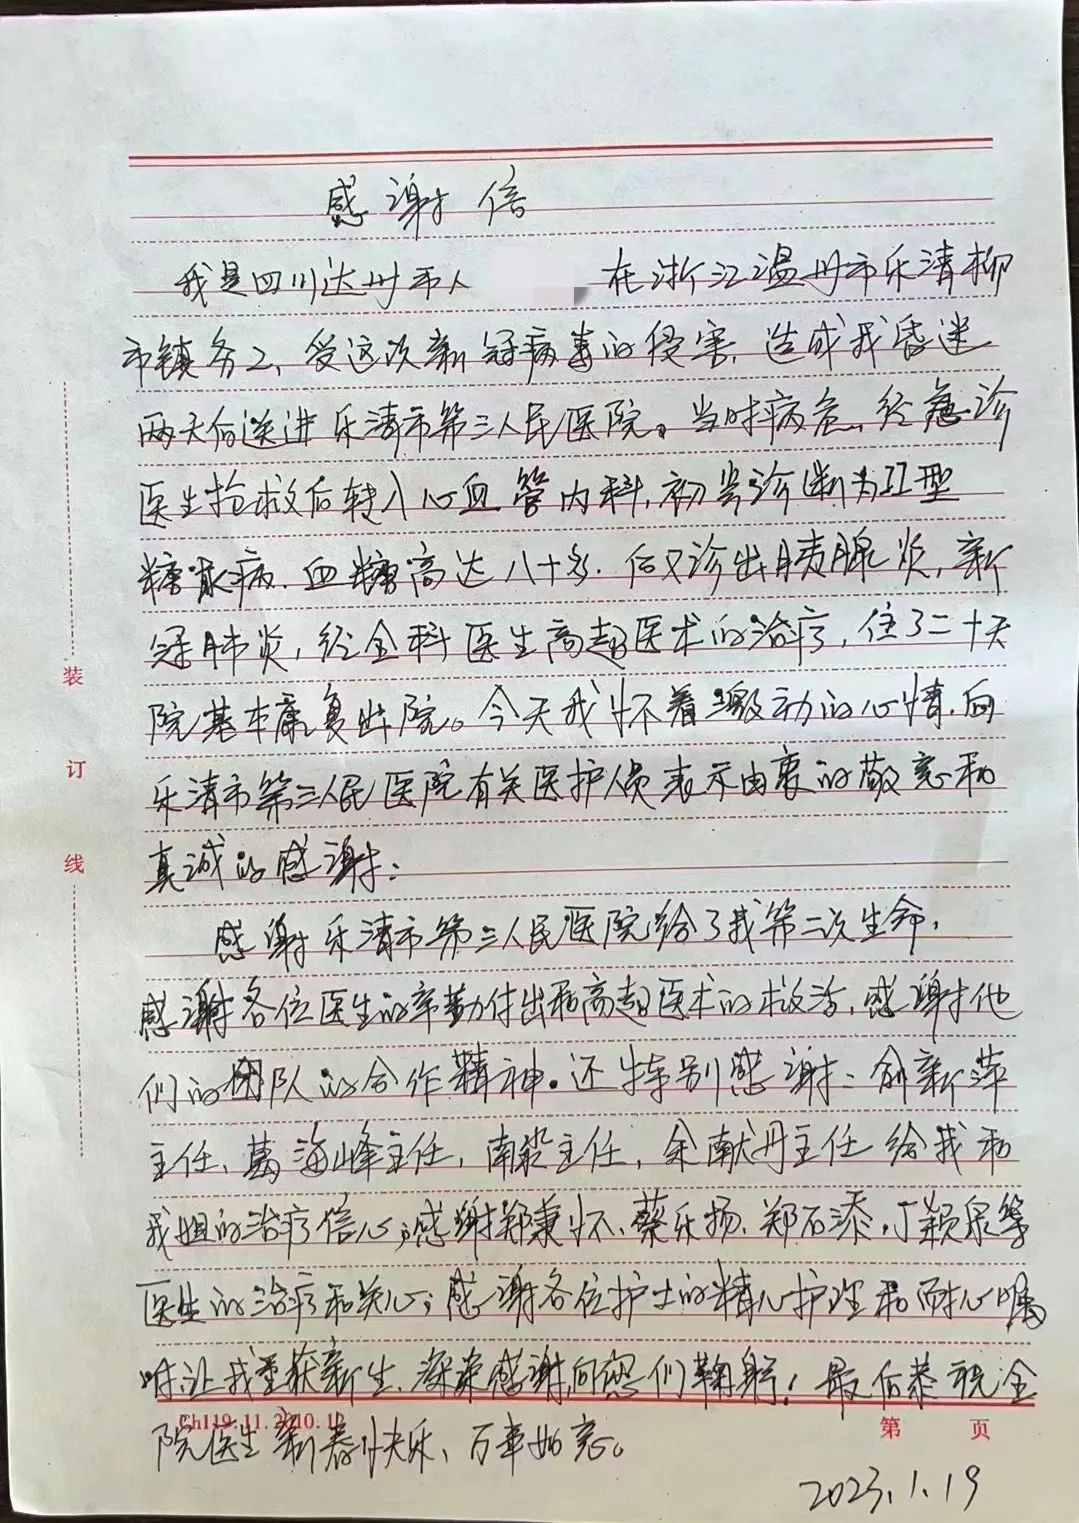 感谢信
我是四川达州市人 在浙江温州市乐清柳
市镇务工、受这次新冠病毒的侵害、造成我昏迷
两天后送进乐清市第三人民医院。当时病危、经急诊
医生抢救后转入心血管内科,初步诊断为II型
糖尿病、血糖高达八十多、后又诊出胰腺炎,新
冠肺炎,经全科医生高超医术的治疗,住了二十天
院基本康复出院。今天我怀着激动的心情、向
乐清市第三人民医院有关医护人员表示由衷的敬意和
真诚的感谢:
感谢乐清市第三人民医院给了我第二次生命,
感谢各位医生的辛勤付出和高超医术的救治,感谢他
们的团队的合作精神。还特别感谢:俞新萍
主任、葛海峰主任,南 主任,余献丹主任给我和
我姐的治疗信心;感谢郑秉怀、蔡乐扬、郑石添,丁颖泉等
医生的治疗和关心;感谢各位护士的精心护理和耐心嘱
咐,让我重获新生、深深感谢,向您们鞠躬!最后恭祝全
院医生新春快乐、万事如意。
2023.1.19
装
订
线
第 页